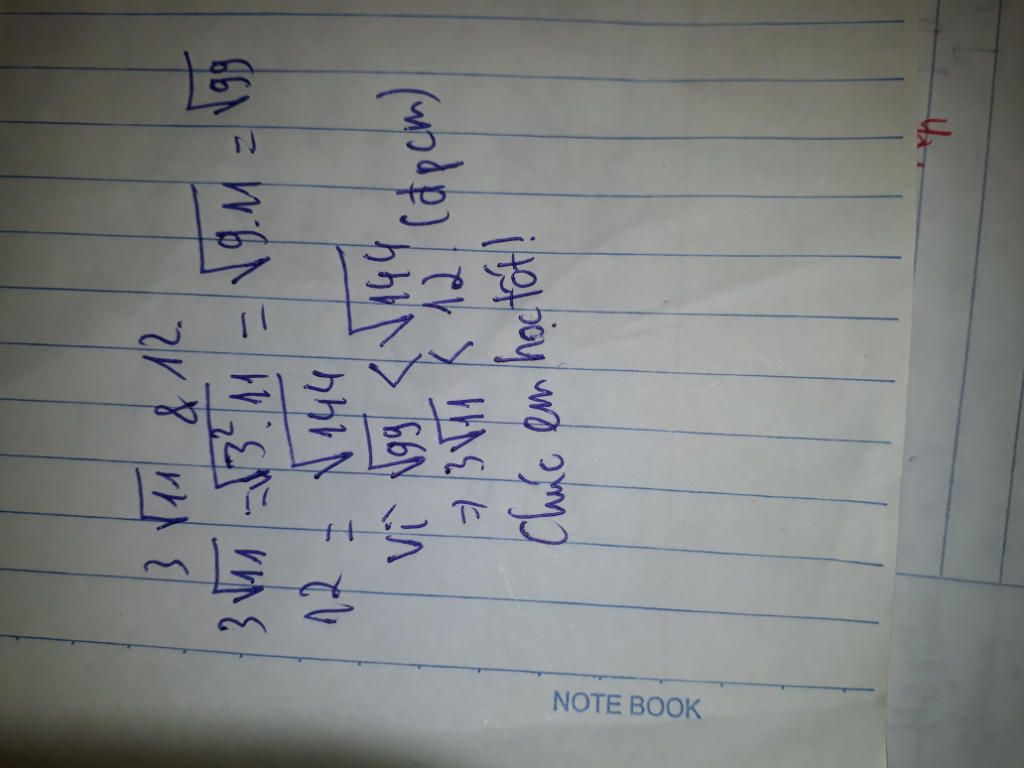 3√11 & 12
3√11 = √3².11 = √9.11 = √99
12 = √144
vì √99 < √144
=> 3√11 < 12 (đpcm)
Chúc em học tốt!
NOTE BOOK